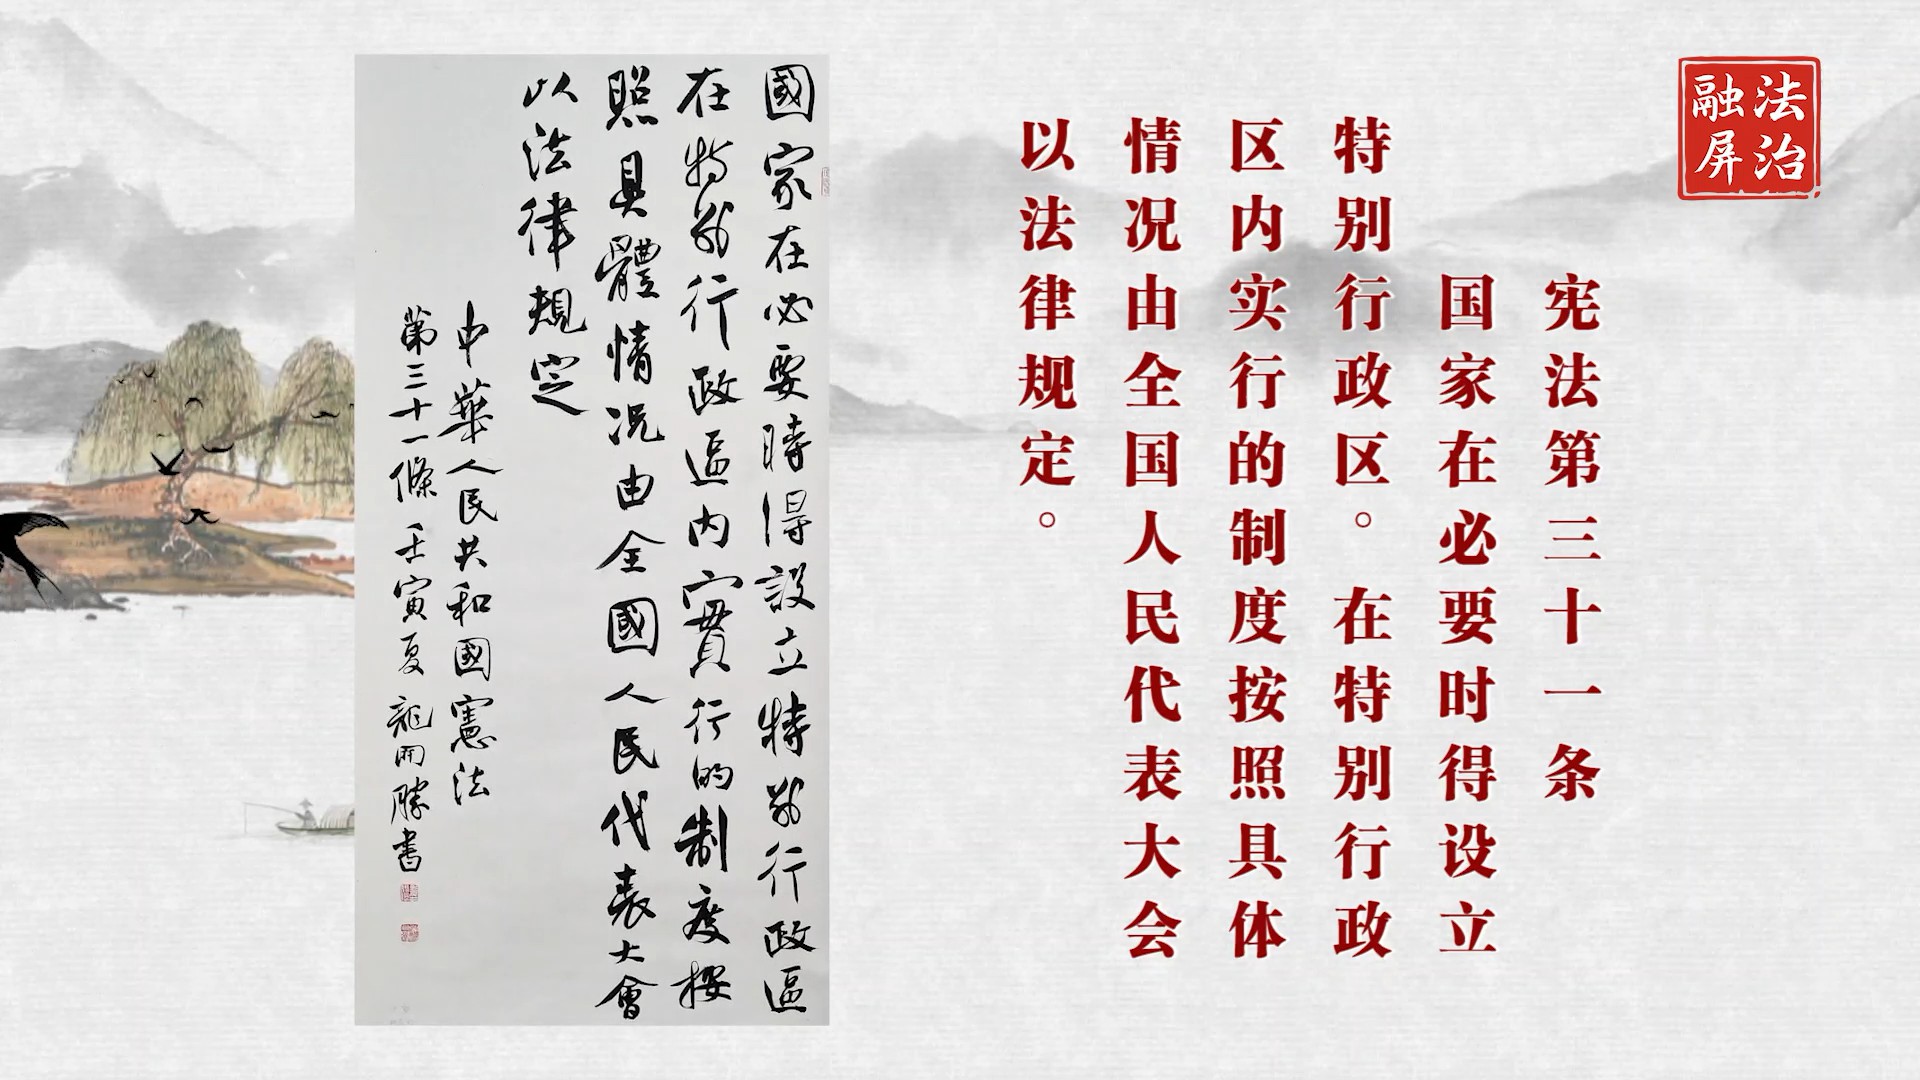 法治
融屏
宪法第三十一条
国家在必要时得设立
特别行政区。在特别行政
区内实行的制度按照具体
情况由全国人民代表大会
以法律规定。
國家在必要時得設立特别行政區
在特别行政區内實行的制度按
照具體情况由全國人民代表大會
以法律規定
中華人民共和國憲法
第三十一條壬寅夏龍開勝書